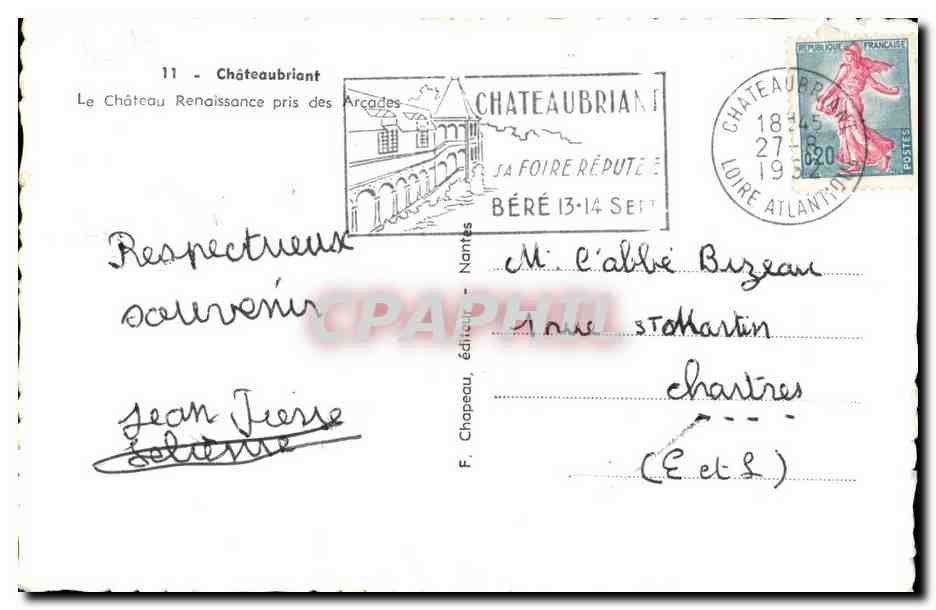 11 - Châteaubriant
Le Château Renaissance pris des Arcades
CHATEAUBRIANT
SA FOIRE RÉPUTÉE
BÉRÉ 13-14 SEPT
CHATEAUBRIANT
18H45
27-8
LOIRE ATLANTIQUE
REPUBLIQUE FRANÇAISE
0,20
POSTES
Respectueux
souvenir
Jean Pierre
F. Chapeau, éditeur - Nantes
M. l'abbé Bizeau
1 rue St Martin
Chartres
(E et L)
CPAPHIL